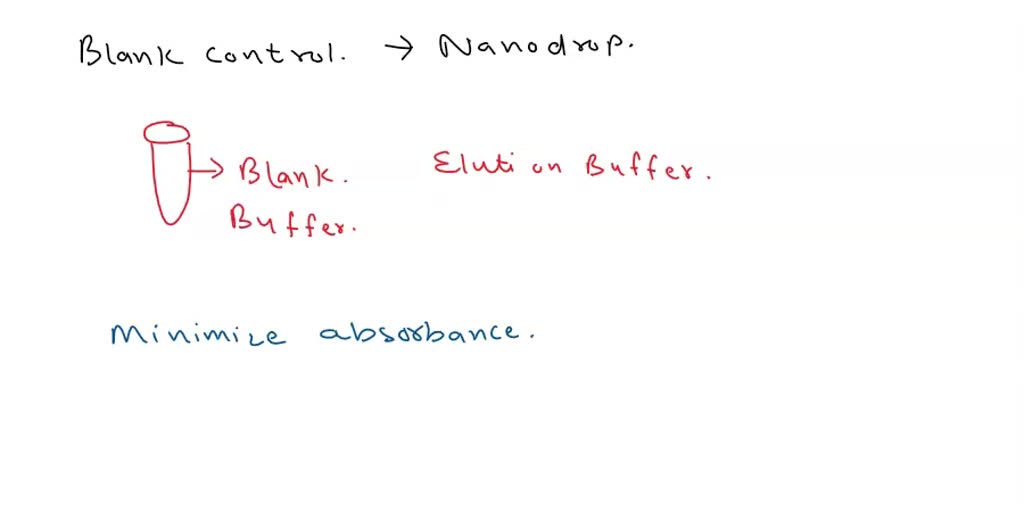 Blank control. → Nanodrop.
→ Blank. Elution Buffer.
Buffer.
Minimize absorbance.